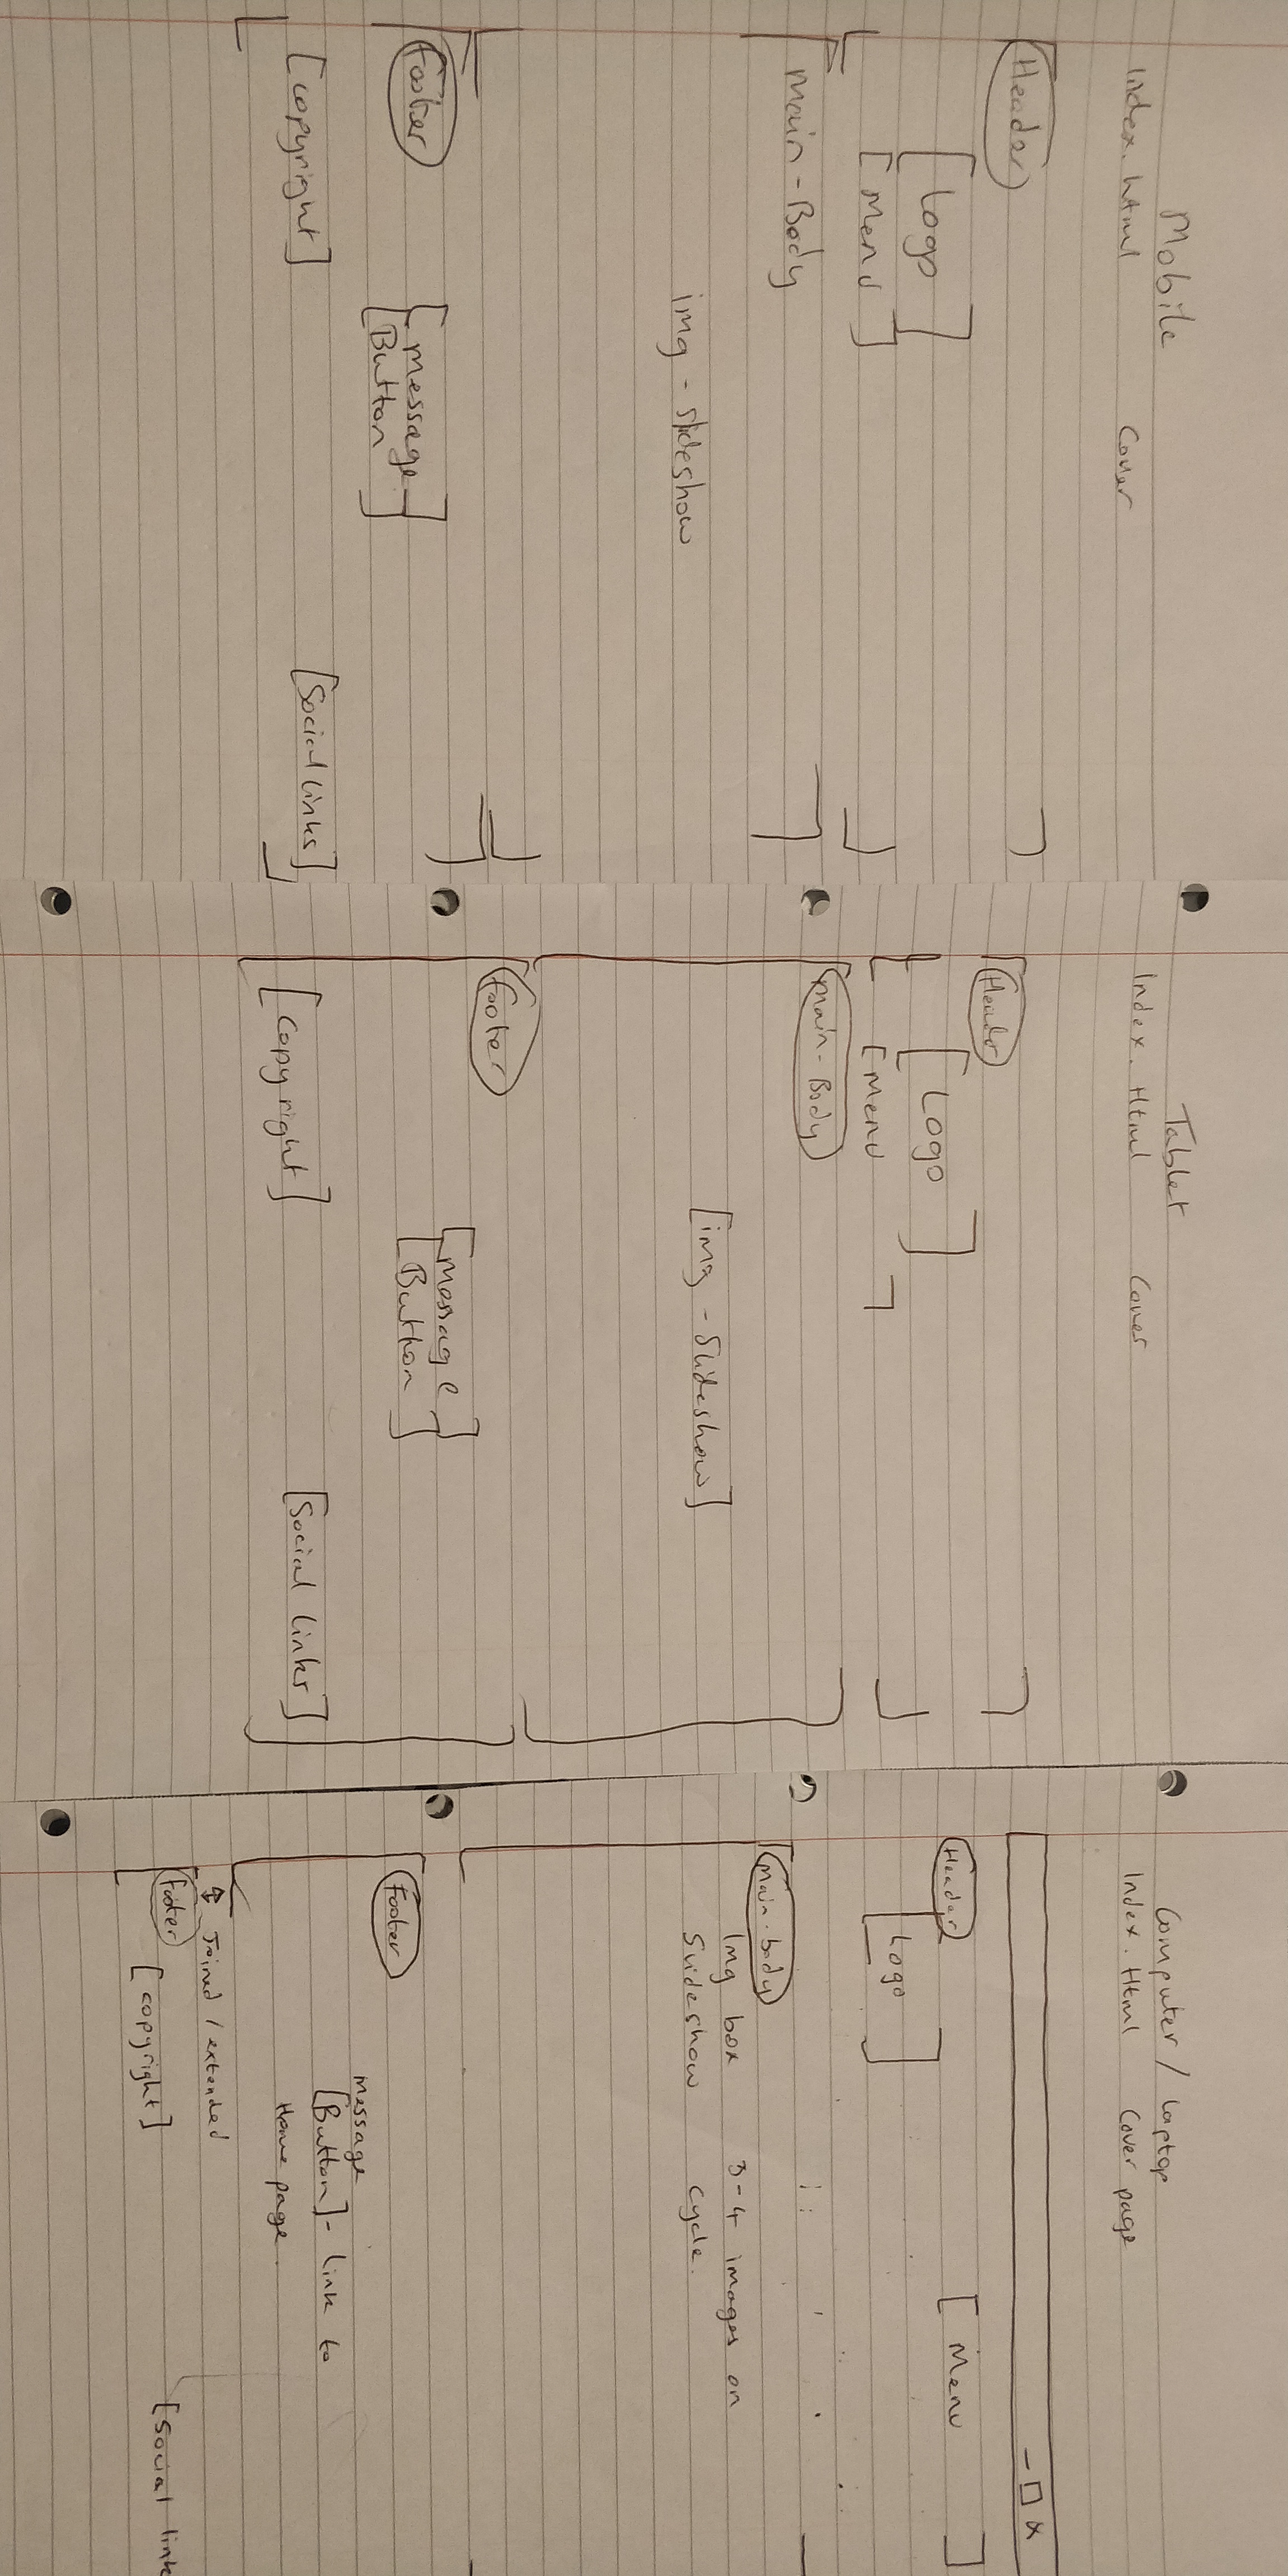 Mobile
Index.html Cover
Header
[Logo]
[Menu]
main-Body
img - slideshow
Footer
[message]
[Button]
[copyright] [Social links]
Tablet
Index.Html Cover
Header
[Logo]
[Menu]
main-Body
[img - Slideshow]
footer
[message]
[Button]
[Copyright] [Social links]
Computer / laptop
Index.Html Cover page
- □ x
Header [Menu]
[Logo]
main-body
Img box 3-4 images on
Slideshow cycle.
Footer
message
[Button]- link to
Home page.
↕ Joined / extended
footer
[copyright] [Social link